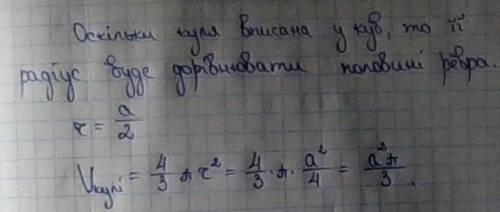 Оскільки куля вписана у куб, то її
радіус буде дорівнювати половині ребра.
r = a/2
Vкулі = 4/3 π r² = 4/3 · π · a²/4 = a²π/3.